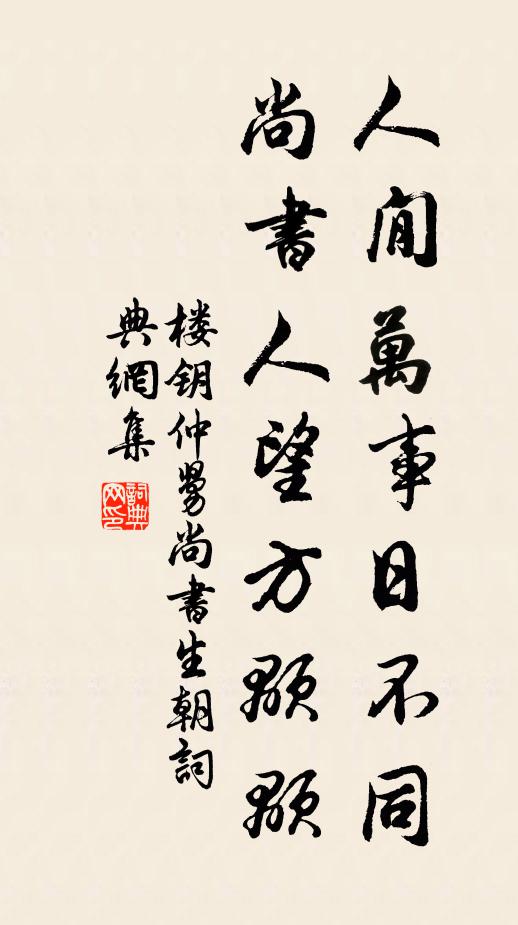 人間萬事日不同
尚書人望方顒顒
楼钥仲舅尚書生朝詞
典網集
詞典網印